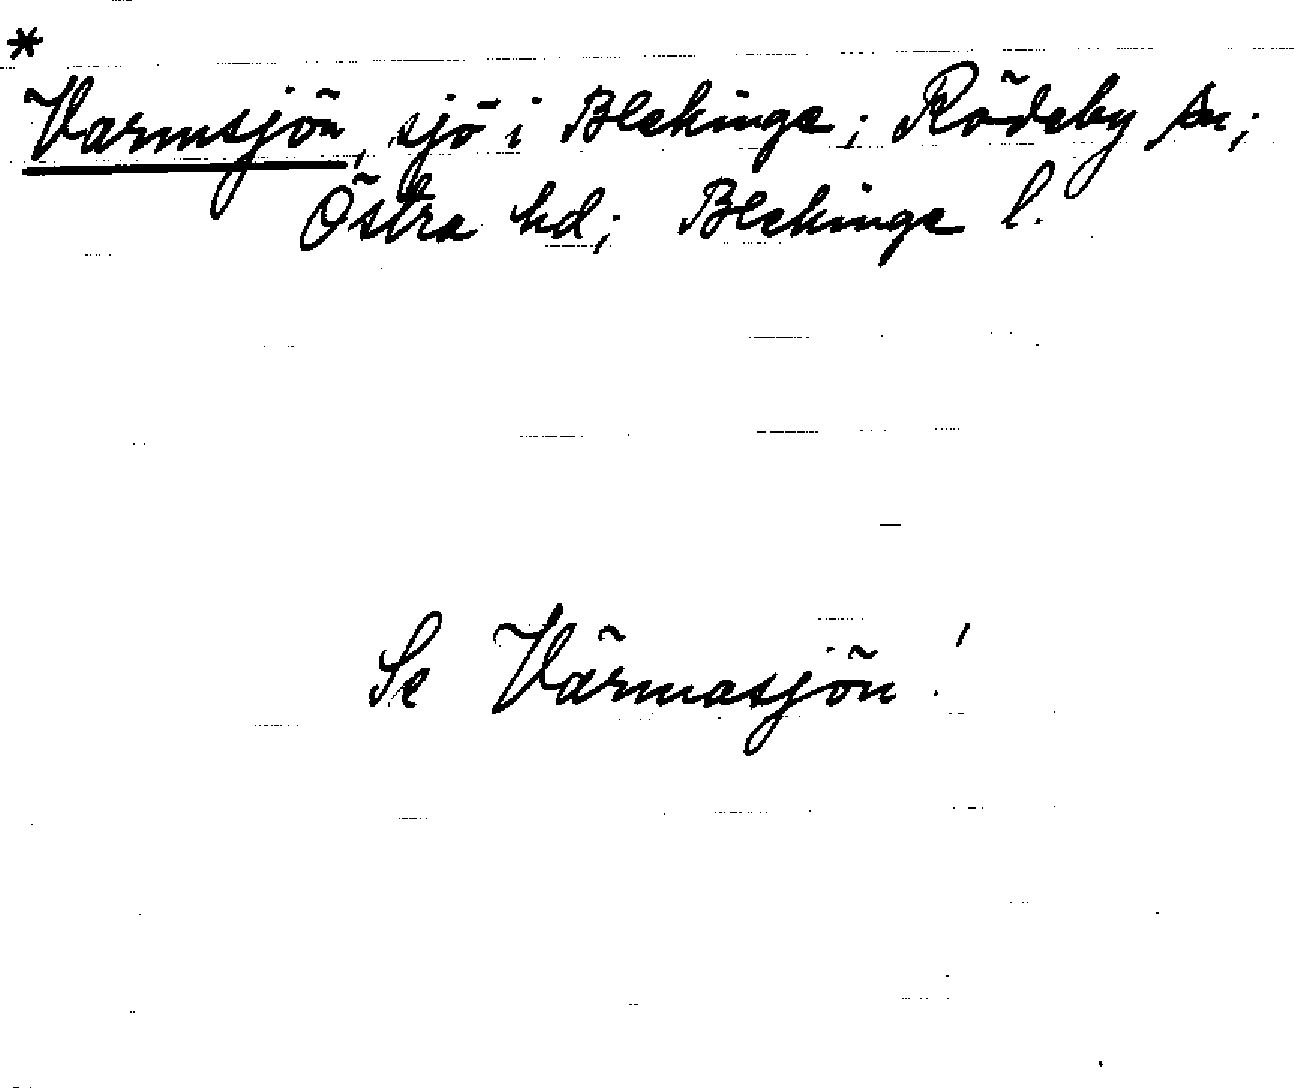 *
Varmsjön, sjö i Blekinge; Rödeby sn;
Östra hd; Blekinge l.
Se Värmasjön!